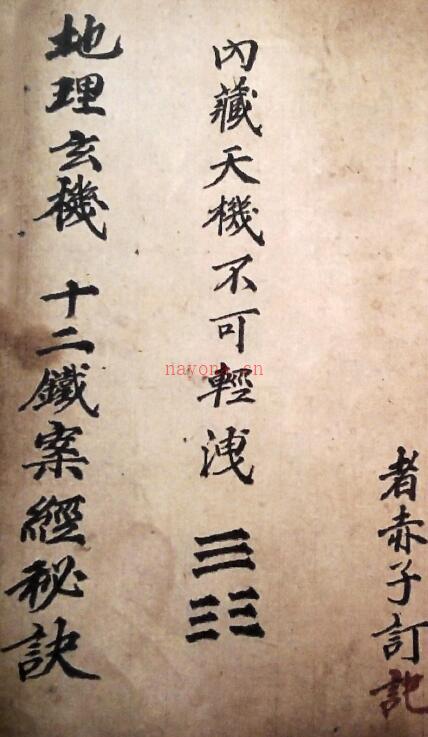 者赤子訂記
內藏天機不可輕洩 ☰☷
地理玄機 十二鐵案經秘訣
nayona.cn